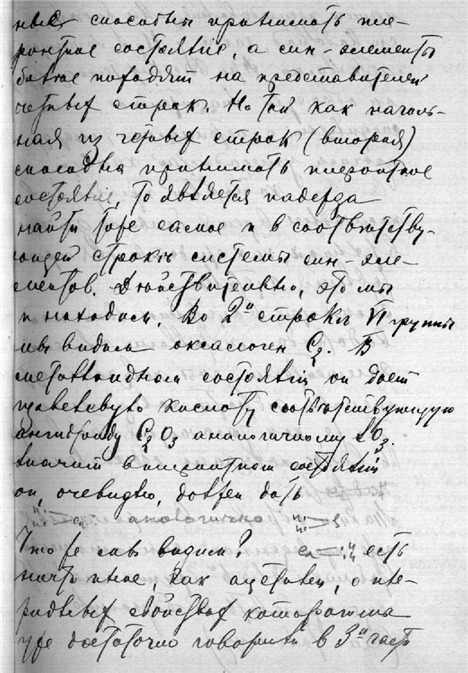 ные способны принимать пе-
ронтное состоянiе, а син-элементы
более походят на представителей
четных строк. Но так как началь-
ная из четных строк (вторая)
способна принимать пиронтное
состоянiе, то является надежда
найти тоже самое и в соответству-
ющей строкѣ системы син-эле-
ментов. Дѣйствительно, это мы
и находим. Во 2й строкѣ VI группы
мы видим оксалоген C2. В
состоянiи он дает
щавелевую кислоту соответствующую
ангидриду C2O3 аналогичному
значит в состоянiи
он, очевидно, должен дать
аналогично
Что же мы видим? есть
ничто иное как ацетилен, о
свойствах которого мы
уже достаточно говорили в 3й част